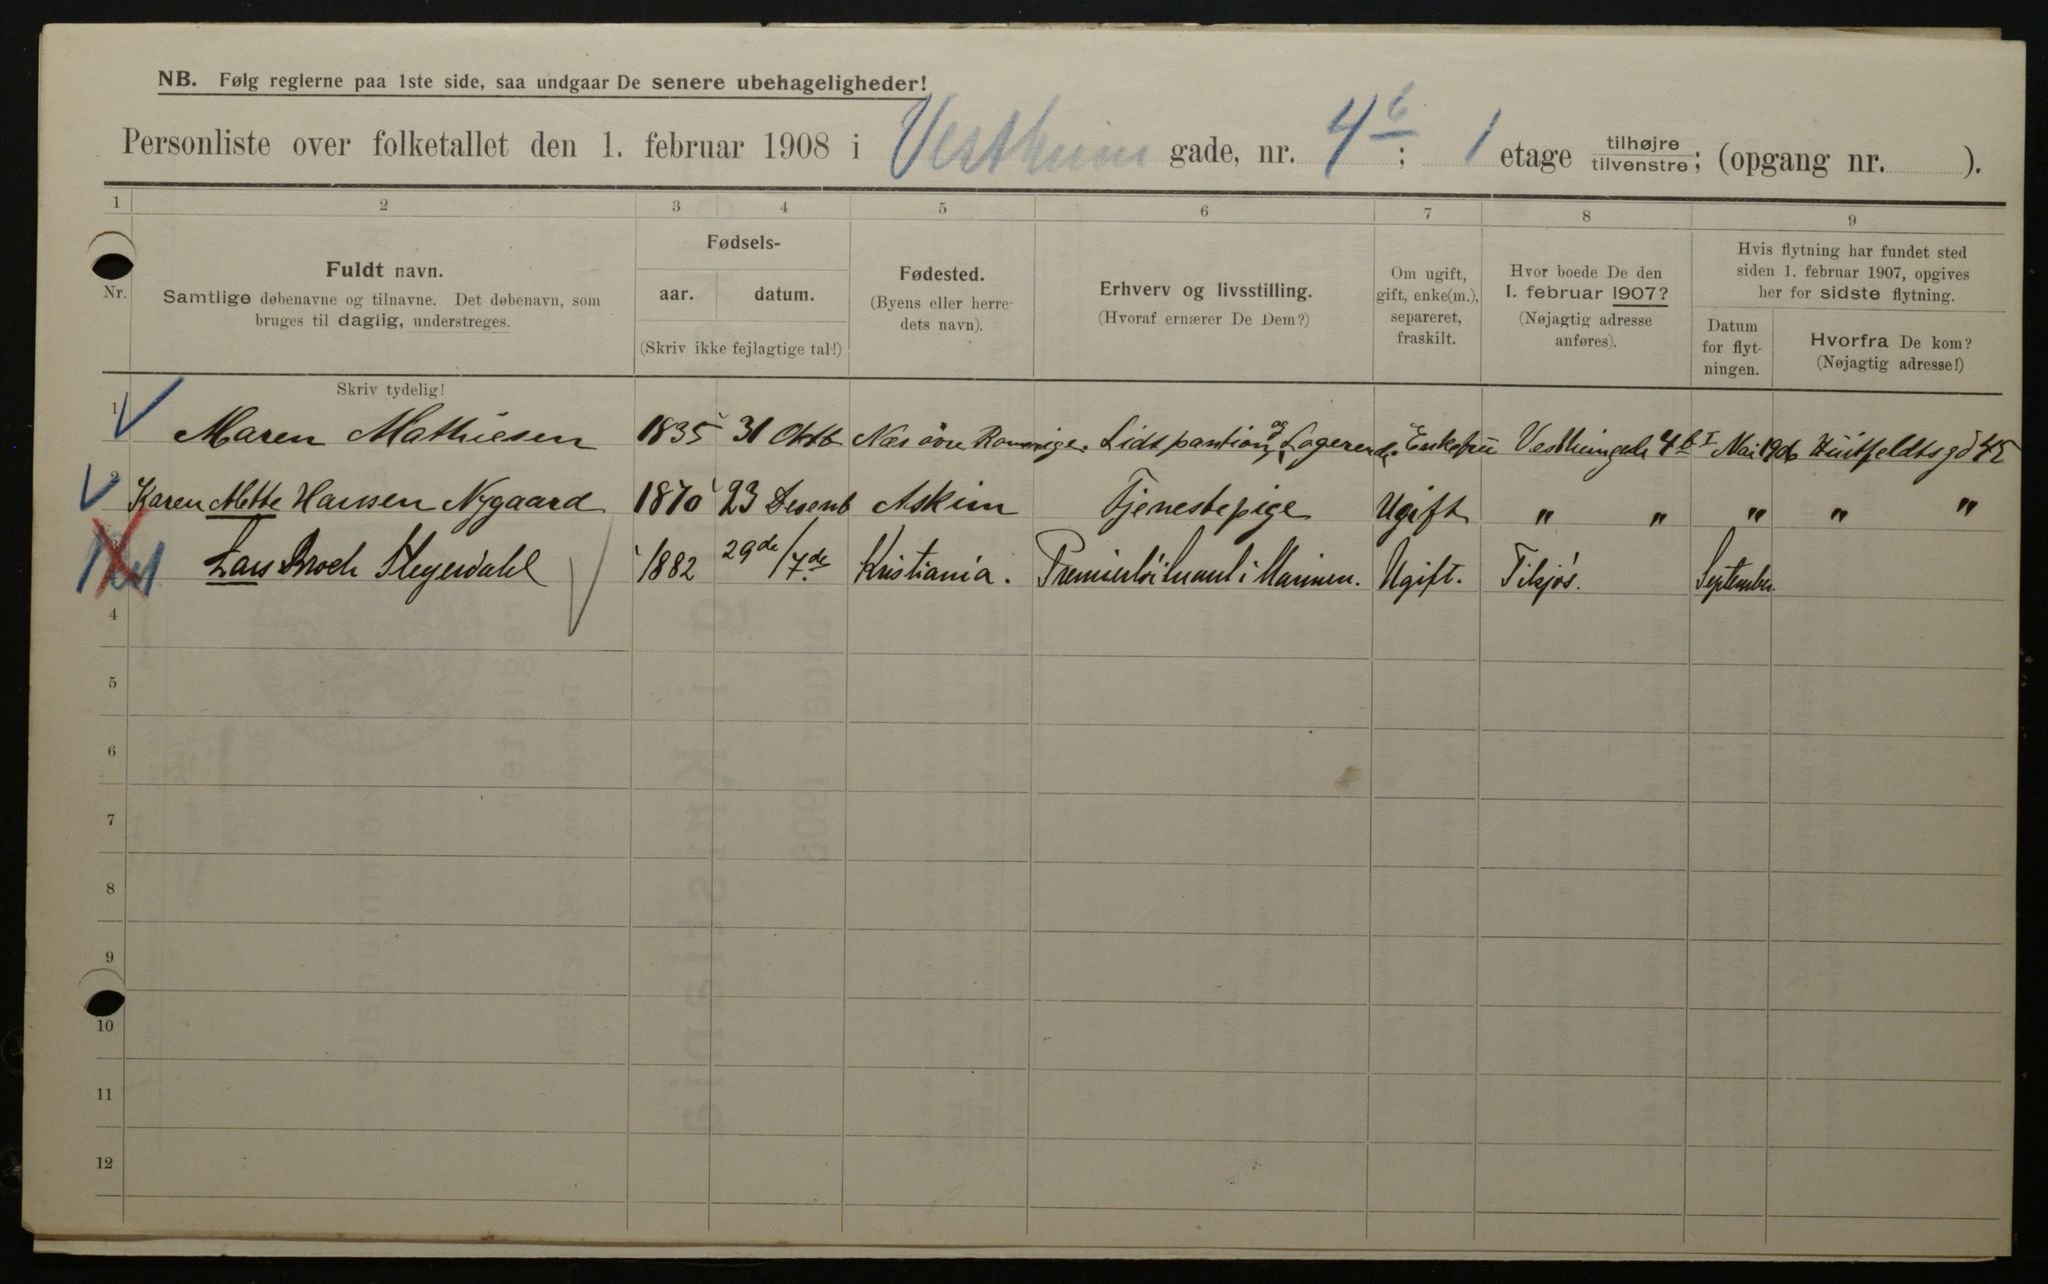 NB. Følg reglerne paa 1ste side, saa undgaar De senere ubehageligheder!
Personliste over folketallet den 1. februar 1908 i Vestheim gade, nr. 4b; 1 etage tilhøjre tilvenstre; (opgang nr. ).
1 2 3 4 5 6 7 8 9
Nr.
Fuldt navn.
Samtlige døbenavne og tilnavne. Det døbenavn, som
bruges til daglig, understreges.
Fødsels-
aar. datum.
(Skriv ikke fejlagtige tal!)
Fødested.
(Byens eller herre-
dets navn).
Erhverv og livsstilling.
(Hvoraf ernærer De Dem?)
Om ugift,
gift, enke(m.),
separeret,
fraskilt.
Hvor boede De den
1. februar 1907?
(Nøjagtig adresse
anføres).
Hvis flytning har fundet sted
siden 1. februar 1907, opgives
her for sidste flytning.
Datum
for flyt-
ningen.
Hvorfra De kom?
(Nøjagtig adresse!)
Skriv tydelig!
1 Maren Mathiesen 1835 31 Oktb Nes øvre Romerige. og Logerende Enkefru 4b I Mai 1906 Huitfeldtsgd 45
2 Karen Mette Hansen Nygaard 1870 23 Desemb Askim Tjenestepige Ugift " " " " "
3 Lars Broch 1882 29de/7de Kristiania. Premierløitnant i Marinen. Ugift. Tilsjøs. September.
4
5
6
7
8
9
10
11
12